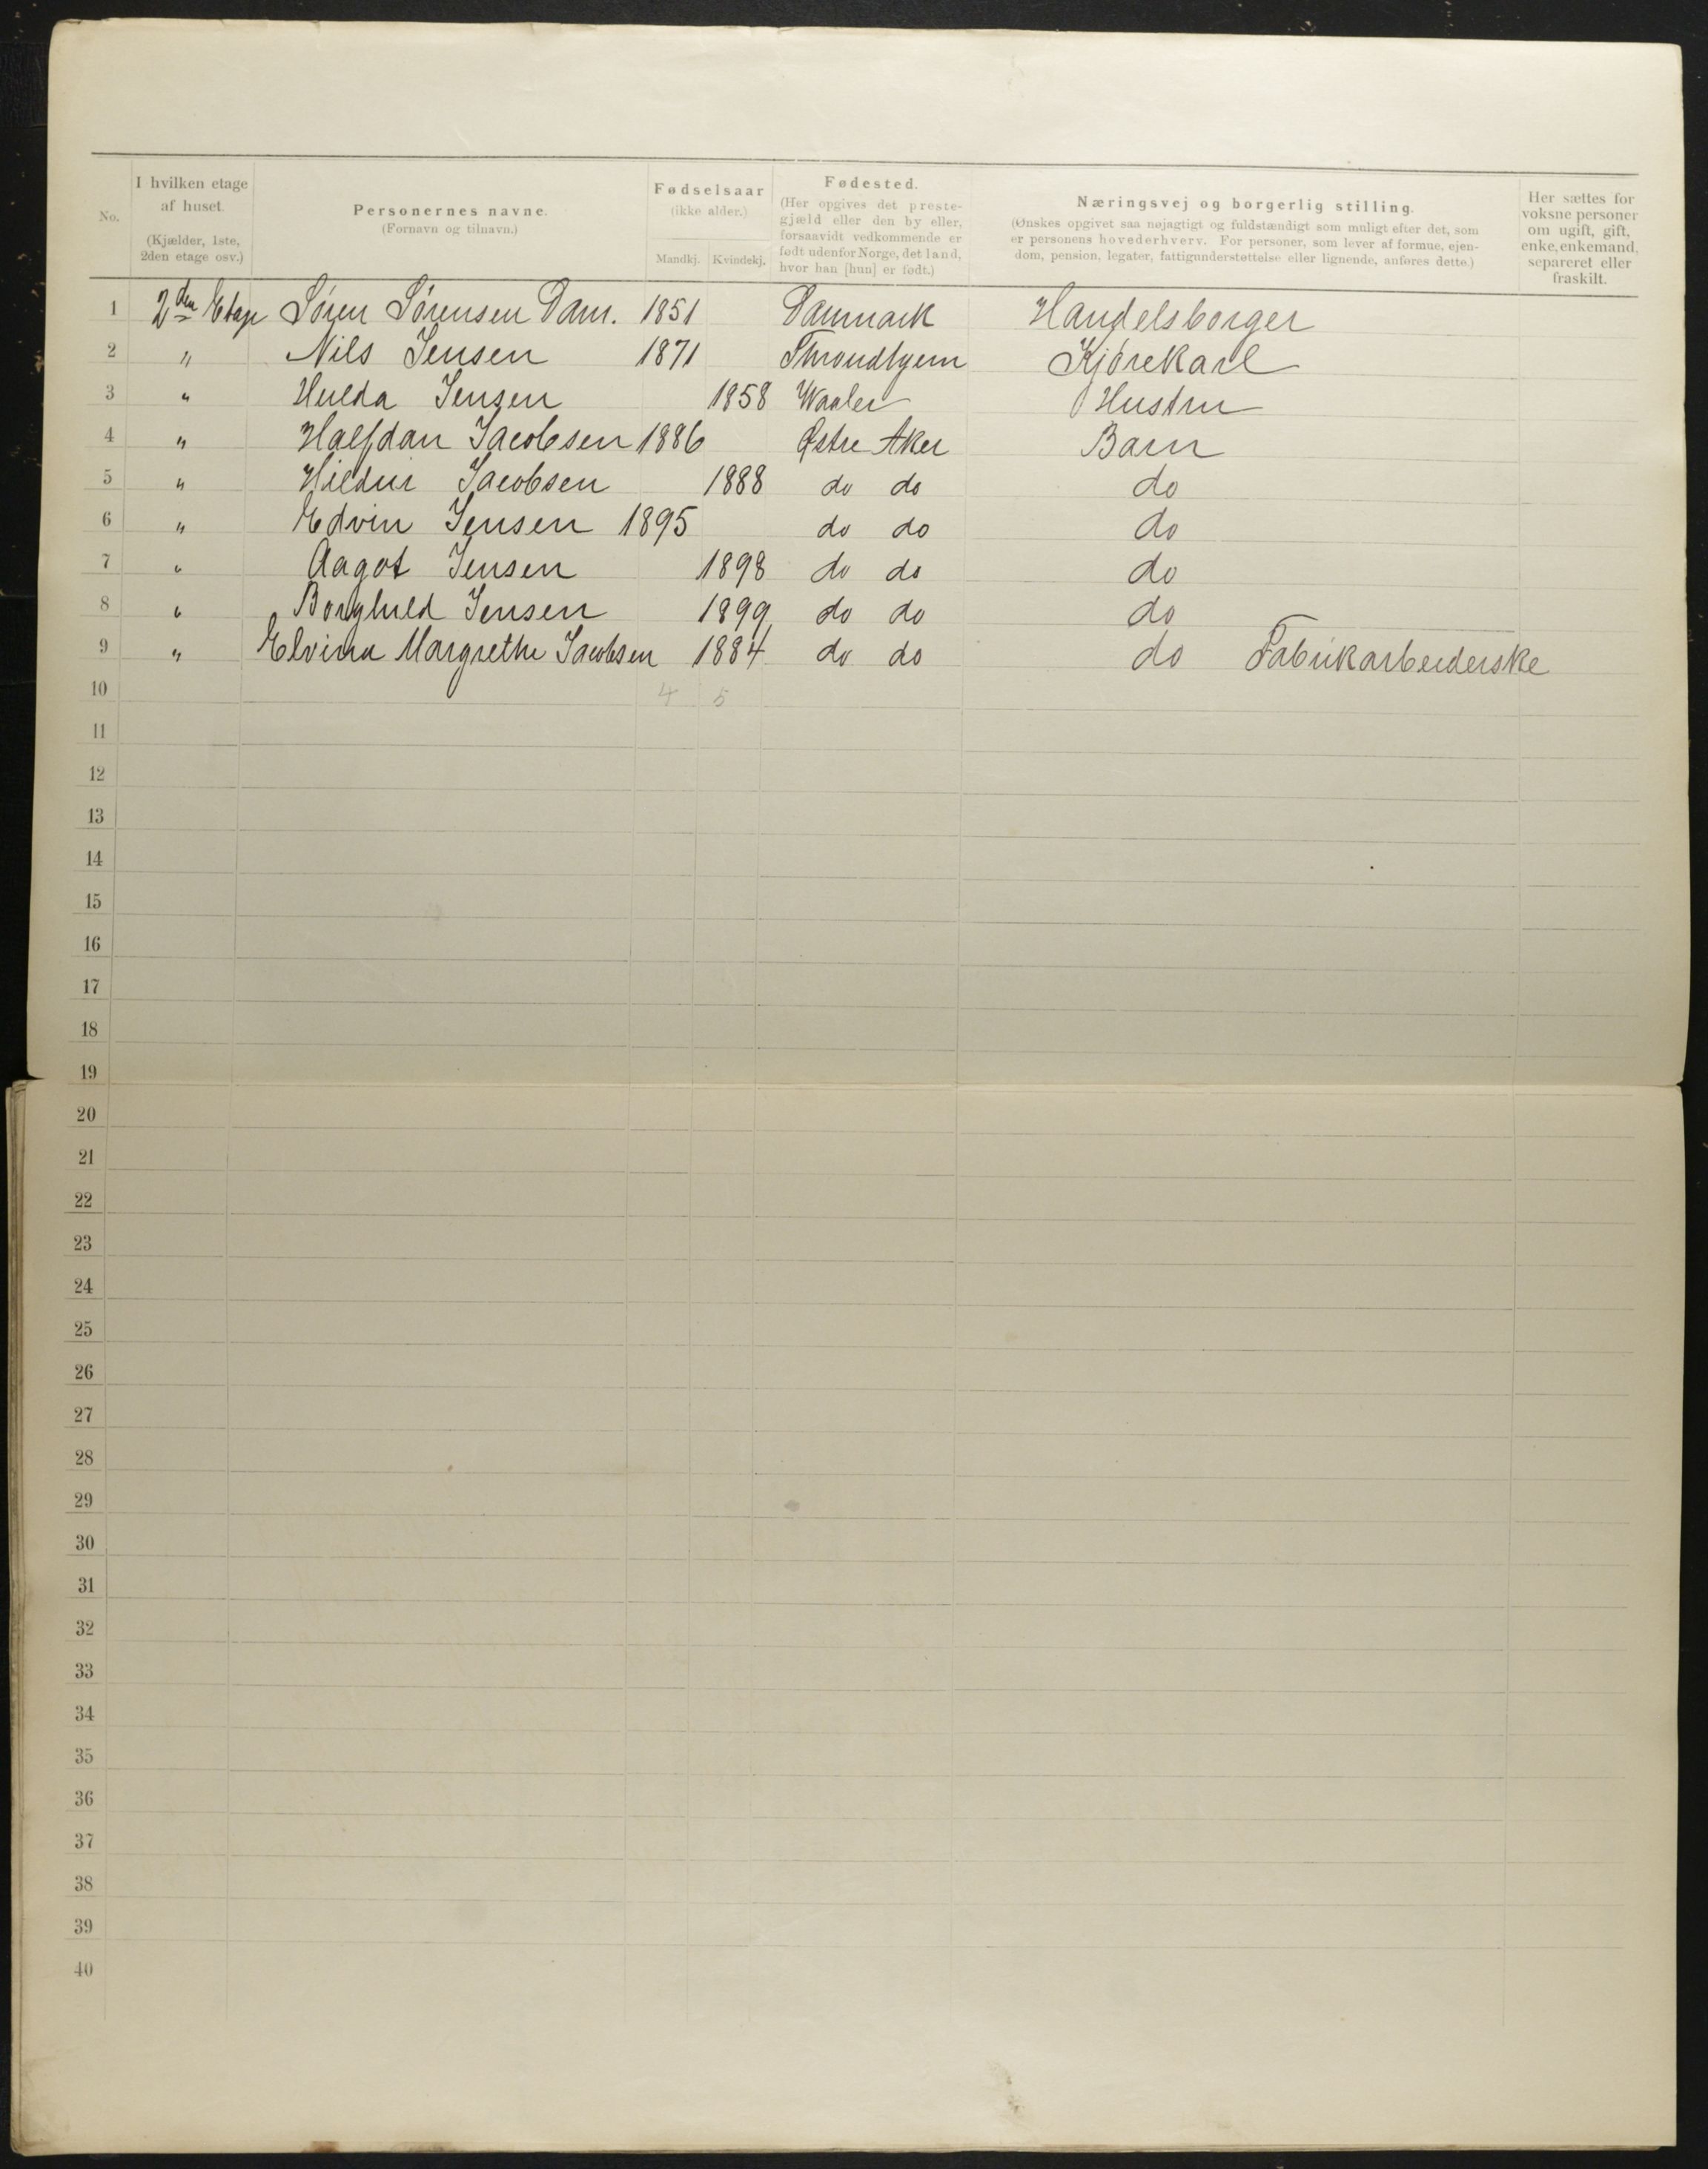 No.
I hvilken etage af huset. (Kjælder, 1ste, 2den etage osv.)
Personernes navne. (Fornavn og tilnavn.)
Fødselsaar (ikke alder.) Mandkj. Kvindekj.
Fødested. (Her opgives det prestegjæld eller den by eller, forsaavidt vedkommende er født udenfor Norge, det land, hvor han [hun] er født.)
Næringsvej og borgerlig stilling. (Ønskes opgivet saa nøjagtigt og fuldstændigt som muligt efter det, som er personens hovederhverv. For personer, som lever af formue, ejendom, pension, legater, fattigunderstøttelse eller lignende, anføres dette.)
Her sættes for voksne personer om ugift, gift, enke, enkemand, separeret eller fraskilt.
1 2den Etage Søren Sørensen Dam. 1851 Danmark Handelsborger
2 " Nils Jensen 1871 Throndhjem Kjørekarl
3 " Hulda Jensen 1858 Waaler Hustru
4 " Halfdan Jacobsen 1886 Østre Aker Barn
5 " Hildur Jacobsen 1888 do do do
6 " Edvin Jensen 1895 do do do
7 " Aagot Jensen 1898 do do do
8 " Borghild Jensen 1899 do do do
9 " Elvina Margrethe Jacobsen 1884 do do do Fabrikarbeiderske
10 4 5
11
12
13
14
15
16
17
18
19
20
21
22
23
24
25
26
27
28
29
30
31
32
33
34
35
36
37
38
39
40